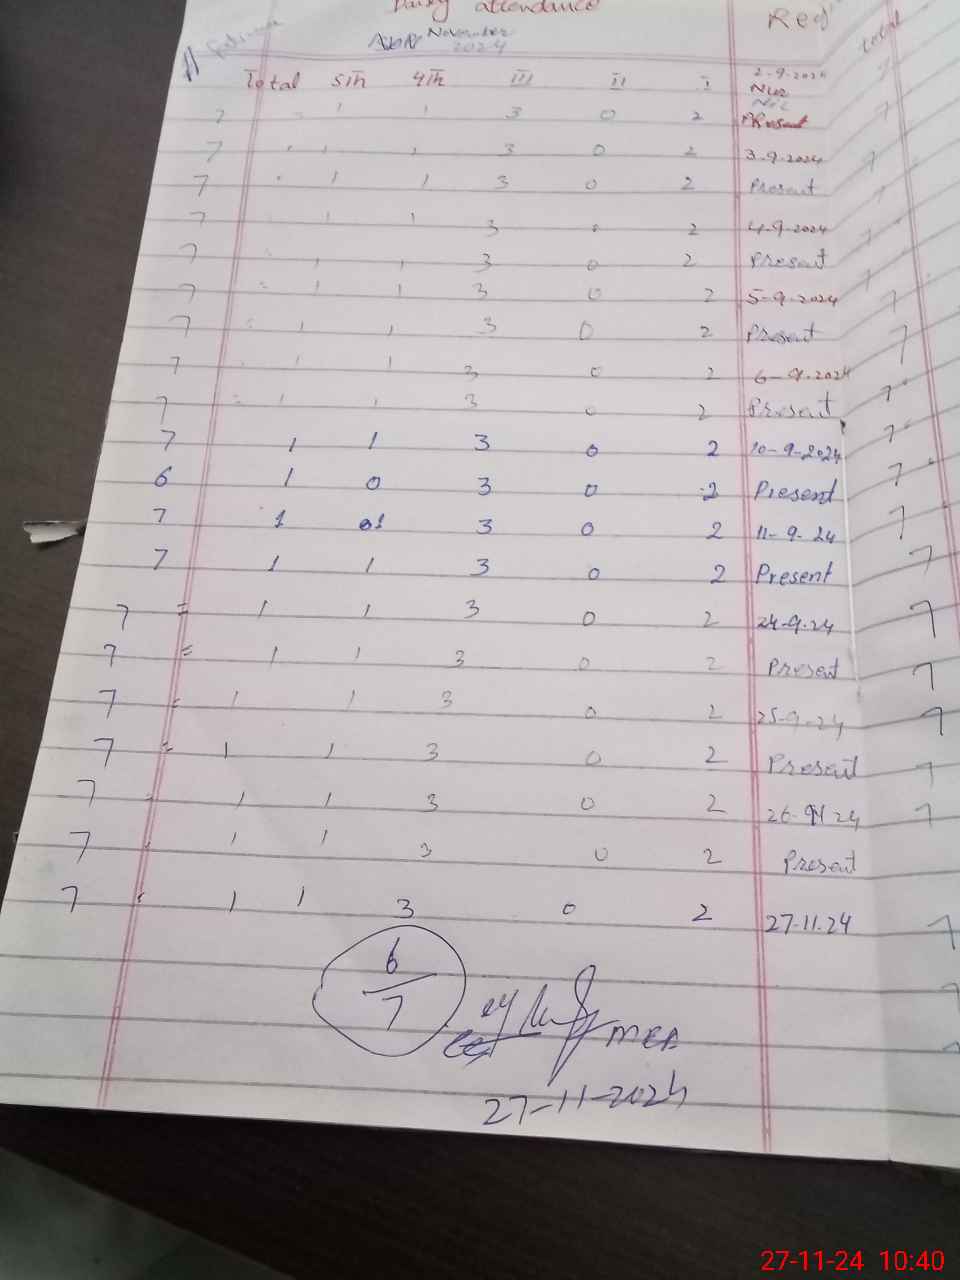 Daily attendance
Reg
November
2024
total
Total 5th 4th III II I 2-9-2024
Nur
7 1 1 3 0 2 Present
7 1 1 3 0 2 3-9-2024
7 1 1 3 0 2 Present
7 1 1 3 2 4-9-2024
7 1 1 3 0 2 Present
7 1 1 3 0 2 5-9-2024
7 1 1 3 0 2 Present
7 1 1 3 0 2 6-9-2024
7 1 1 3 0 2 Present
7 1 1 3 0 2 10-9-2024
6 1 0 3 0 2 Present
7 1 1 3 0 2 11-9-24
7 1 1 3 0 2 Present
7 = 1 1 3 0 2 24-9-24
7 = 1 1 3 0 2 Present
7 = 1 1 3 0 2 25-9-24
7 = 1 1 3 0 2 Present
7 1 1 3 0 2 26-11-24
7 1 1 3 0 2 Present
7 1 1 3 0 2 27-11-24
6
7
MEA
27-11-2024
27-11-24 10:40